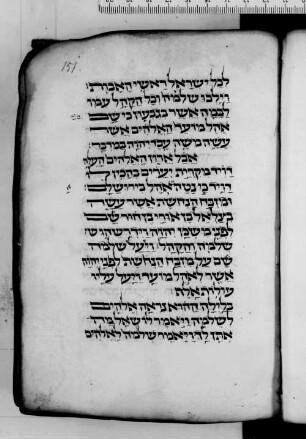 151
לכל ישראל ראשי האבות
וילכו שלמה וכל הקהל עמו
לבמה אשר בגבעון כי שם
אהל מועד האלהים אשר
עשה משה עבד יהוה במדבר
אבל ארון האלהים העלה
דויד מקרית יערים בהכין לו
דויד כי נטה לו אהל בירושלם
ומזבח הנחשת אשר עשה
בצלאל בן אורי בן חור שם
לפני משכן יהוה וידרשהו
שלמה והקהל ויעל שלמה
שם על מזבח הנחשת לפני יהוה
אשר לאהל מועד ויעל עליו
עלות אלף
בלילה ההוא נראה אלהים
לשלמה ויאמר לו שאל מה
אתן לך ויאמר שלמה לאלהים